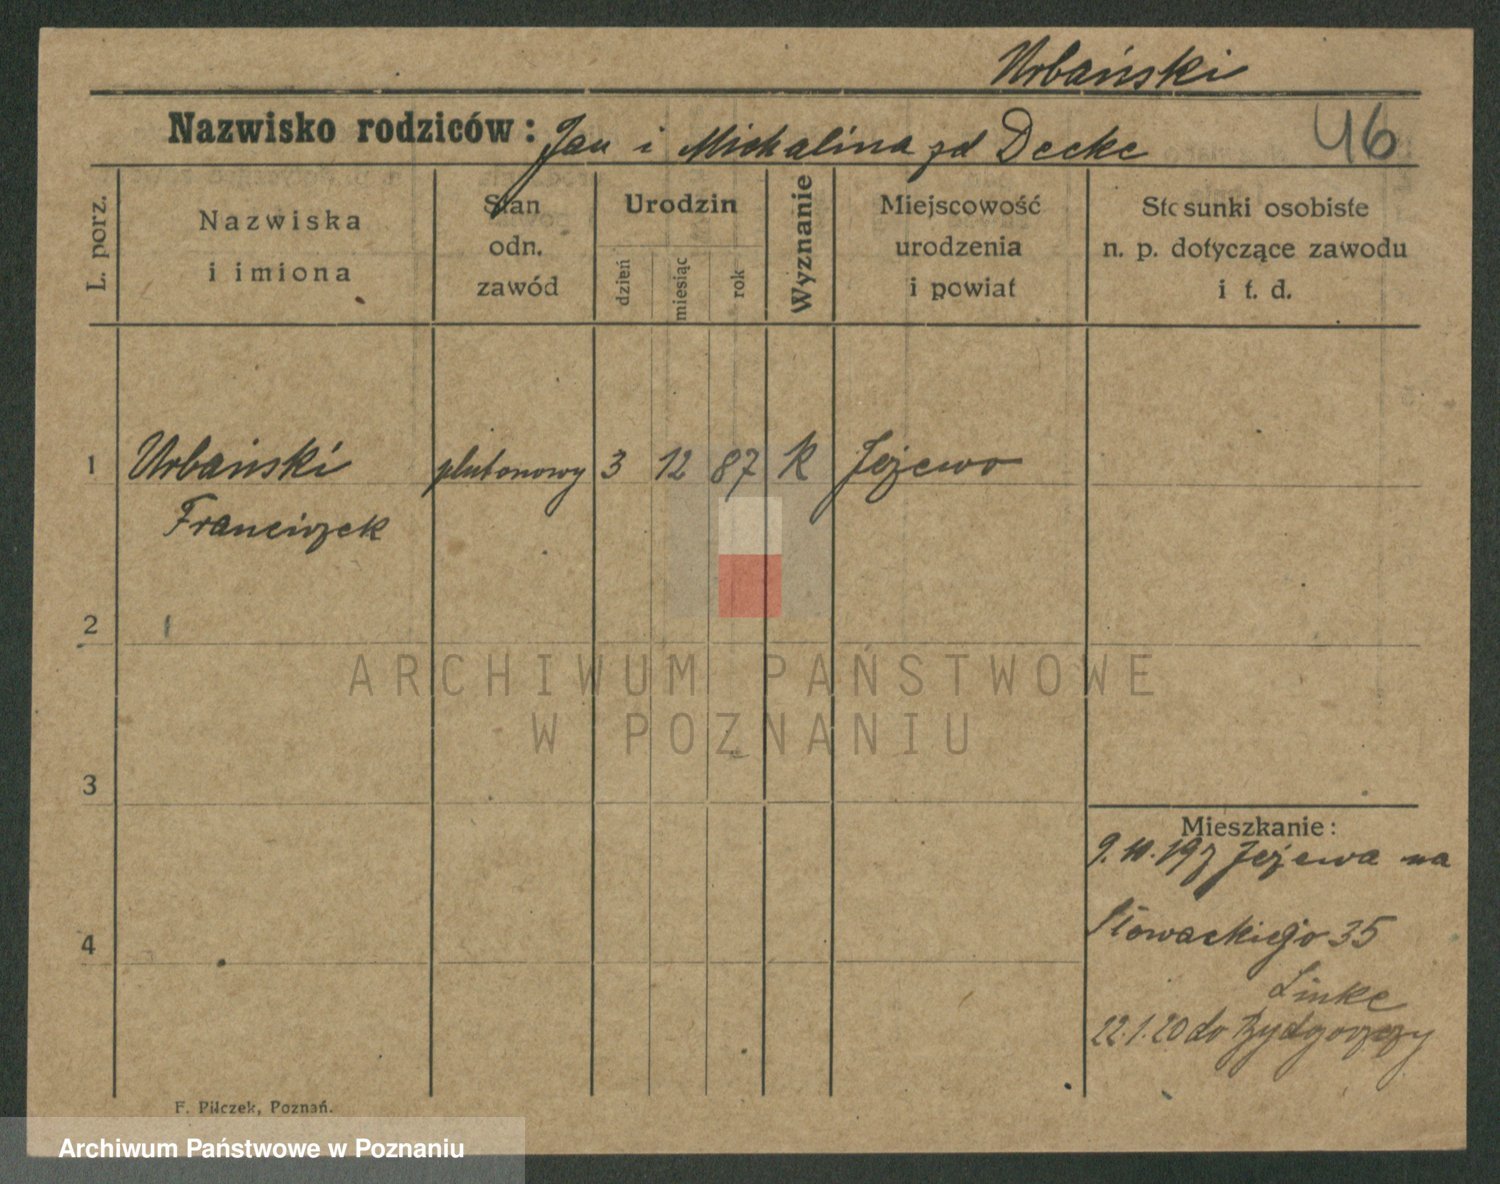 Urbański
Nazwisko rodziców: Jan i Michalina zd Decke
46
L. porz.
Nazwiska
i imiona
Stan
odn.
zawód
Urodzin
dzień
miesiąc
rok
Wyznanie
Miejscowość
urodzenia
i powiat
Stosunki osobiste
n. p. dotyczące zawodu
i t. d.
1 Urbański plutonowy 3 12 87 K Jeżewo
Franciszek
2
3
4
Mieszkanie:
Jeżewa na
Słowackiego 35
Linke
22.1.20 do Bydgoszczy
F. Pilczek, Poznań.
ARCHIWUM PAŃSTWOWE
W POZNANIU
Archiwum Państwowe w Poznaniu